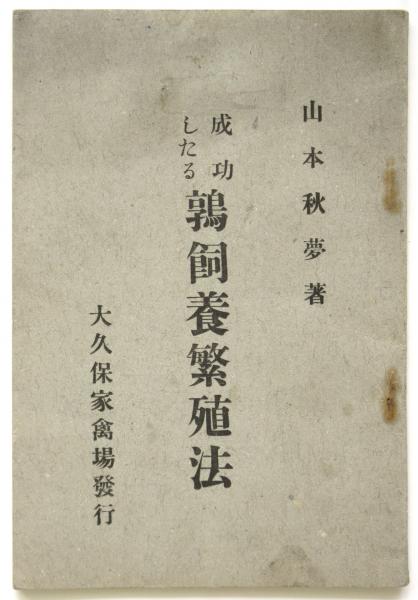 山本秋夢著
成功したる
鶉飼養繁殖法
大久保家禽場發行